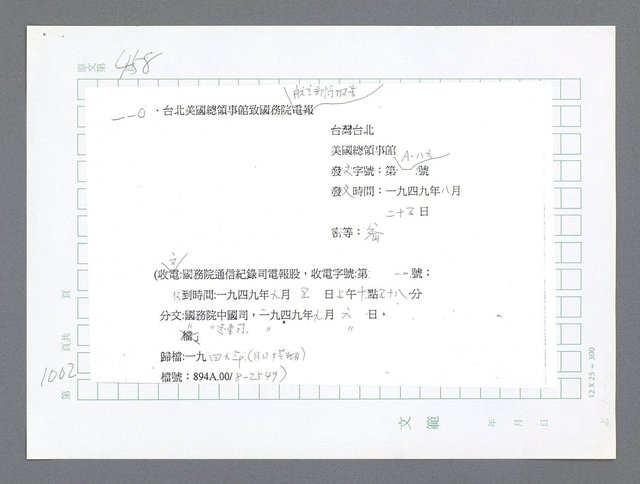 原文第 458
一一〇、台北美國總領事館致國務院電報
台灣台北
美國總領事館
A-八六
發文字號：第　　號
發文時間：一九四九年八月
二十五日
密等：
文
(收電:國務院通信紀錄司電報股，收電字號:第　一一號：
收到時間:一九四九年九月 五 日上午十點五十八分
分文:國務院中國司，一九四九年九月 六 日，
檔 " " "
歸檔:一九四九年(月日
檔號：894A.00/8-2549)
頁
頁共
1002
第
12 X 25 = 300
文 範
年 月 日